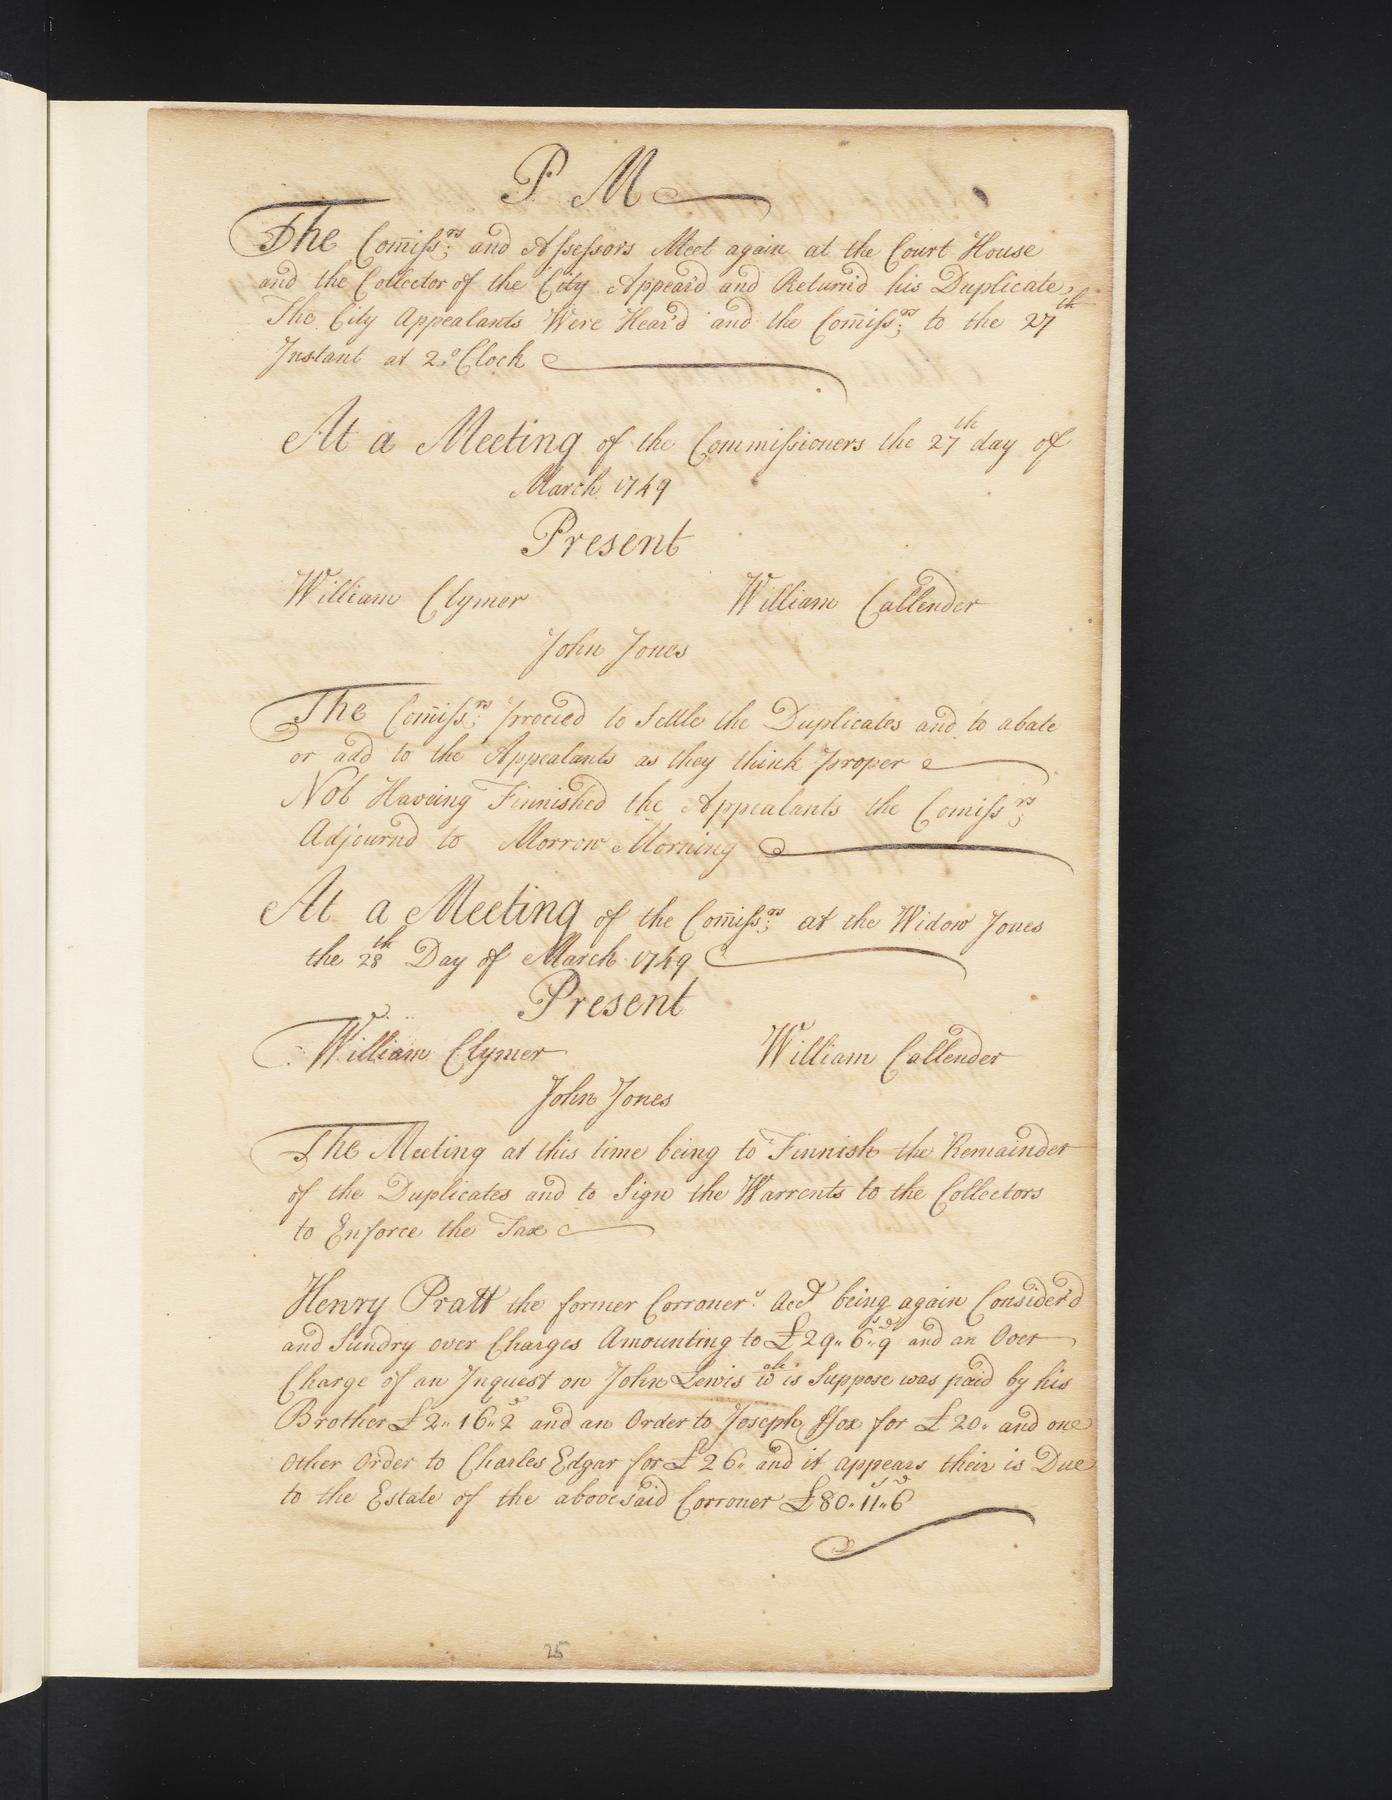 P M
The Com̄iss:rs and Assessors Meet again at the Court House
and the Collector of the City Appear'd and Return'd his Duplicate,
The City Appealants Were Hear'd and the Com̄iss:rs to the 27th
Instant at 2 o Clock
At a Meeting of the Commissioners the 27th day of
March 1749
Present
William Clymer William Callender
John Jones
The Com̄iss:rs proceed to Settle the Duplicates and to abate
or add to the Appealants as they think proper
Not Haveing Finnished the Appealants the Comiss:rs
Adjournd to Morrow Morning
At a Meeting of the Com̄iss:rs at the Widow Jones
the 28th Day of March 1749
Present
William Clymer William Callender
John Jones
The Meeting at this time being to Finnish the Remainder
of the Duplicates and to Sign the Warrents to the Collectors
to Enforce the Tax
Henry Pratt the former Corroner's Acct being again Consider'd
and Sundry over Charges Amounting to £29,, 6s,, 9d and an Over
Charge of an Inquest on John Lewis wch is Suppose was paid by his
Brother £2,, 16,, 2d and an Order to Joseph ffox for £20,, and one
Other Order to Charles Edgar for £26,, and it appears their is Due
to the Estate of the abovesaid Corroner £80,, 11s,, 6d
25